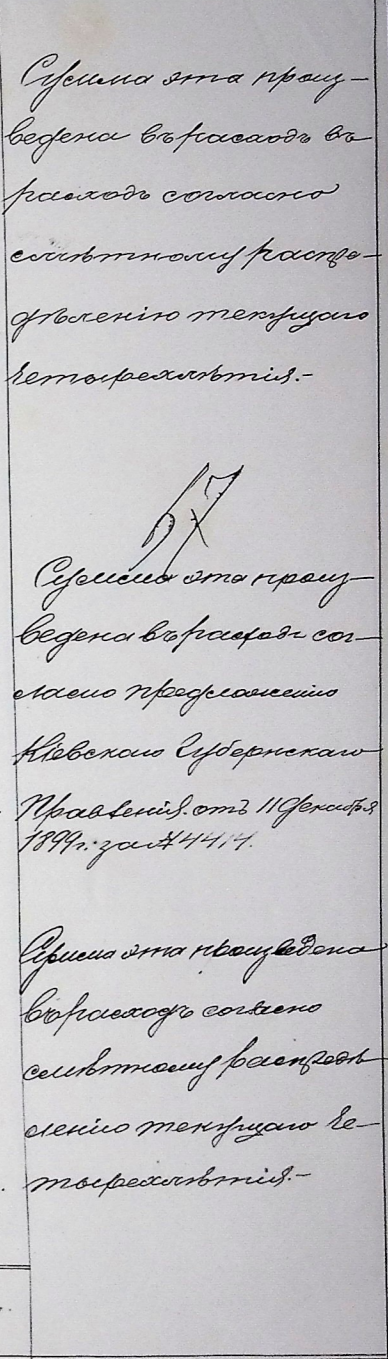 Сумма эта произ-
ведена въ расходъ въ
расходъ согласно
смѣтному распре-
дѣленію текущаго
четырехлѣтія.-
57
Сумма эта произ-
ведена въ расходъ сог-
ласно предложенію
Кіевскаго Губернскаго
Правленія отъ 11 Декабря
1899 г. за № 4414.
Сумма эта произведена
въ расходъ согласно
смѣтному распредѣ-
ленію текущаго че-
тырехлѣтія.-